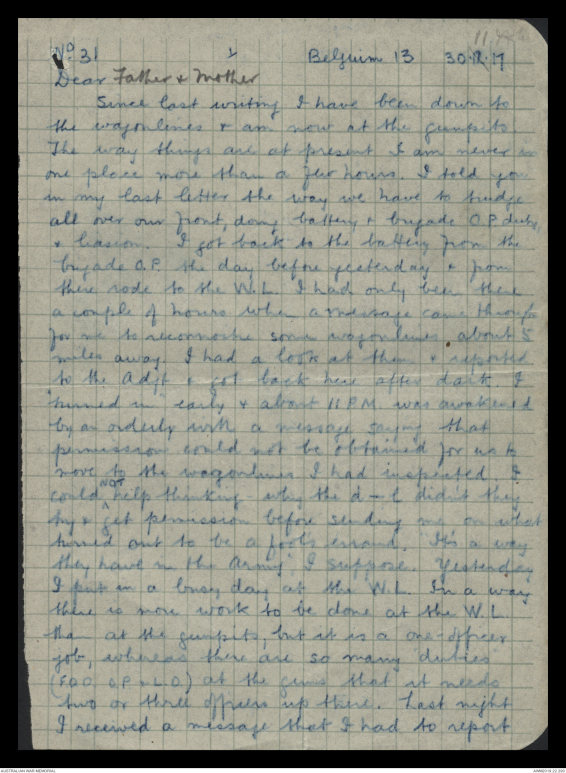 No. 31 1 Belgium 13 30.12.17
Dear Father & Mother
Since last writing I have been down to
the wagonlines & am now at the gunpits
The way things are at present I am never in
one place more than a few hours. I told you
in my last letter the way we have to trudge
all over our front, doing battery & brigade O.P. duties
& liaison. I got back to the battery from the
brigade O.P. the day before yesterday & from
there rode to the W.L. I had only been there
a couple of hours when a message came through
for me to reconnoitre some wagonlines about 5
miles away. I had a look at them & reported
to the Adjt & got back here after dark. I
"turned in" early & about 11 P.M. was awakened
by an orderly with a message saying that
permission could not be obtained for us to
move to the wagonlines I had inspected. I
could NOT help thinking - why the d-l didn't they
try & get permission before sending me on what
turned out to be a fool's errand. It's a way
they have in the Army I suppose. Yesterday
I put in a busy day at the W.L. In a way
there is more work to be done at the W.L.
than at the gunpits, but it is a one-officer
job, whereas there are so many duties
(F.O.O. O.P. & L.O.) at the guns that it needs
two or three officers up there. Last night
I received a message that I had to report
AUSTRALIAN WAR MEMORIAL